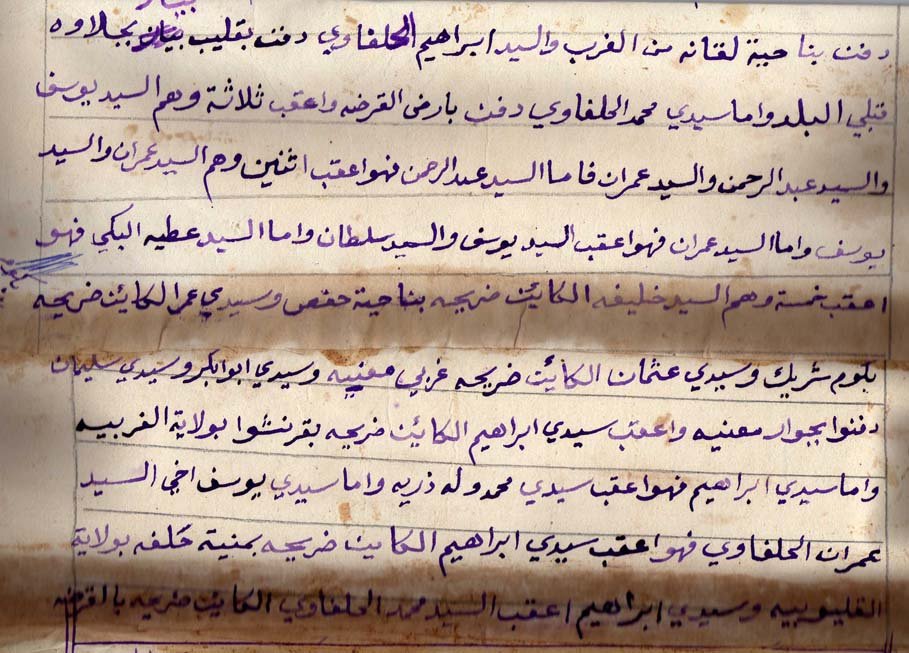 دفن بناحية لقانه من الغرب والسيد ابراهيم الحلفاوي دفن بقليب بيان بجلاوه
قبلي البلد واما سيدي محمد الحلفاوي دفن بارض القرضه واعقب ثلاثة وهم السيد يوسف
والسيد عبد الرحمن والسيد عمران فاما السيد عبد الرحمن فهو اعقب اثنين وهم السيد عمران والسيد
يوسف واما السيد عمران فهو اعقب السيد يوسف والسيد سلطان واما السيد عطيه البكي فهو
اعقب خمسة وهم السيد خليفه الكائن ضريحه بناحية حفص وسيدي عمر الكائن ضريحه
بكوم شريك وسيدي عثمان الكائن ضريحه غربي معنيه وسيدي ابو ابكر وسيدي سليمان
دفنوا بجوار معنيه واعقب سيدي ابراهيم الكائن ضريحه بقرنشوا بولاية الغربيه
واما سيدي ابراهيم فهو اعقب سيدي محمد وله ذريه واما سيدي يوسف اخي السيد
عمران الحلفاوي فهو اعقب سيدي ابراهيم الكاين ضريحه بمنية خلفه بولاية
القليوبيه وسيدي ابراهيم اعقب السيد محمد الحلفاوي الكائن ضريحه بالقرضه